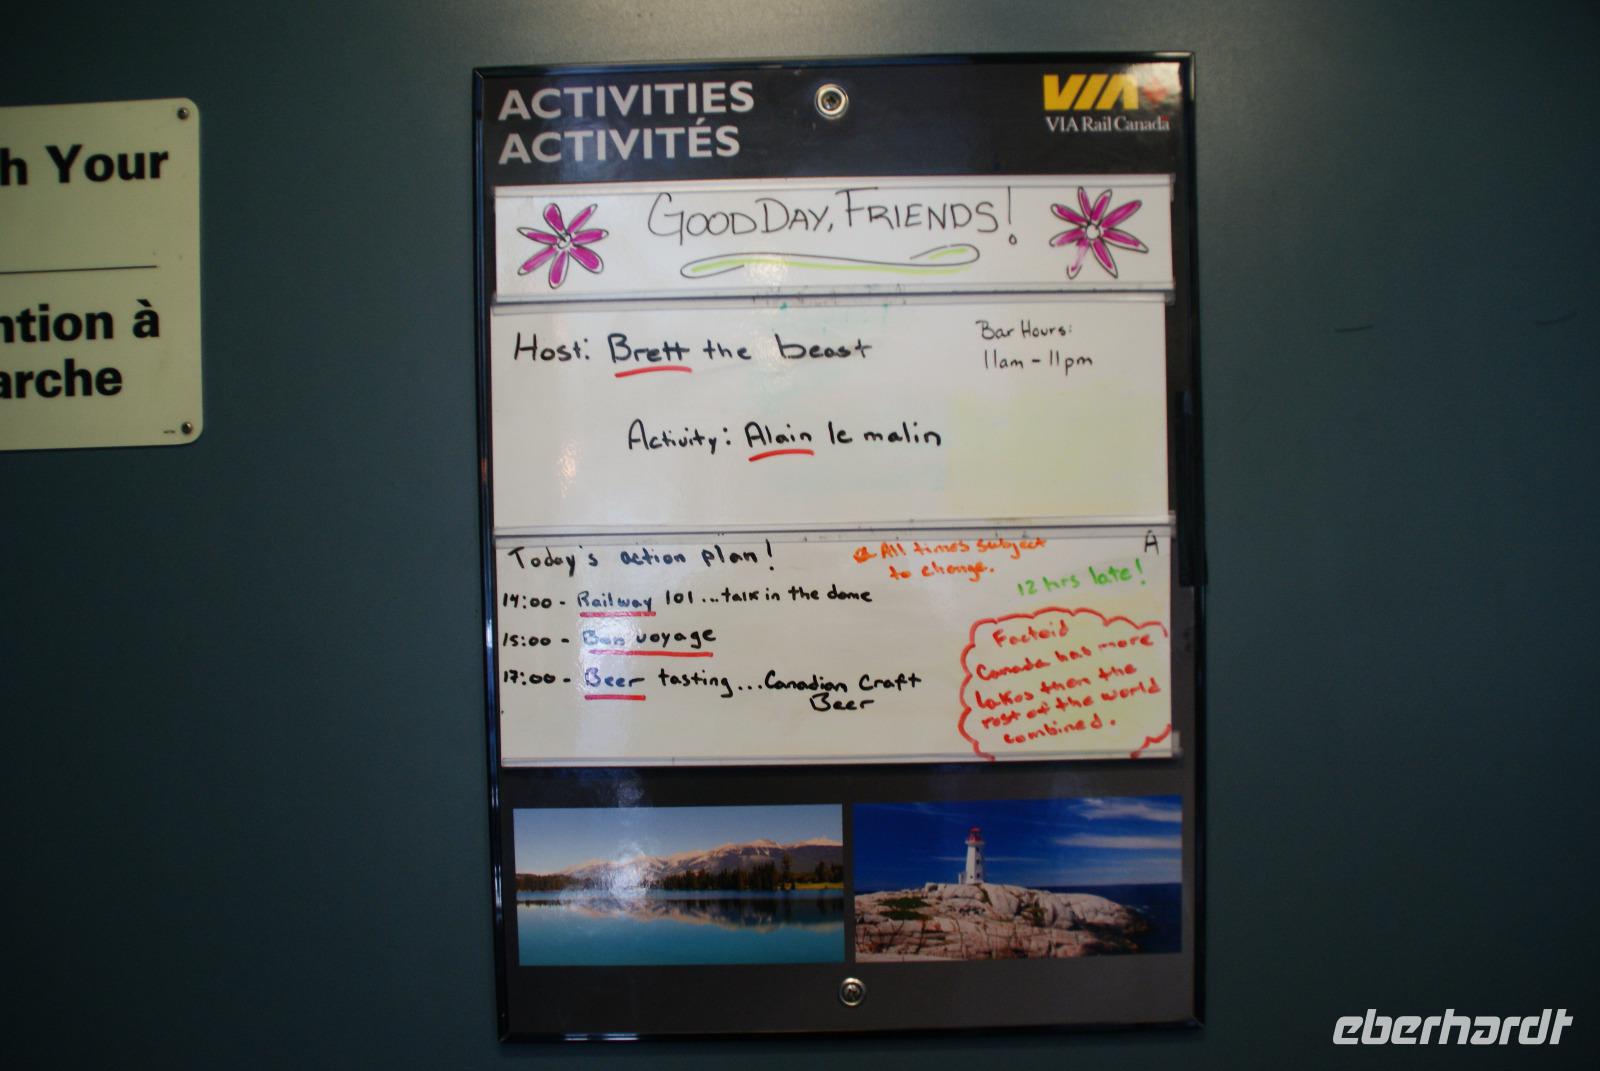 h Your
ntion à
arche
ACTIVITIES
ACTIVITÉS
VIA
VIA Rail Canada
GOOD DAY, FRIENDS!
Host: Brett the beast
Bar Hours:
11am - 11pm
Activity: Alain le malin
Today's action plan!
All times subject
to change.
A
12 hrs late!
14:00 - Railway 101...talk in the dome
15:00 - Bon voyage
17:00 - Beer tasting...Canadian Craft
Beer
Factoid
Canada has more
lakes then the
rest of the world
combined.
eberhardt